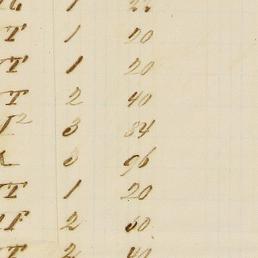 1 22
T 1 20
T 1 20
T 2 40
1² 3 84
3 96
T 1 20
F 2 50
T 2 40